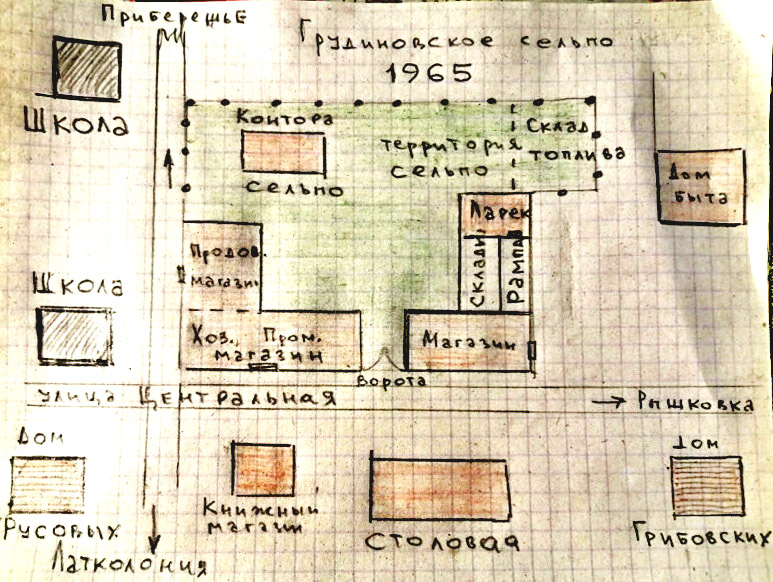 Прибережье
Грудиновское сельпо
1965
Школа
Контора
сельпо
территория
сельпо
Склад
топлива
Дом
быта
Ларек
Склады
Рампа
Продов.
магазин
Школа
Хоз., Пром.
магазин
Магазин
Ворота
улица Центральная
→ Рышковка
Дом
Русовых
Книжный
магазин
Столовая
Дом
Грибовских
Латколония